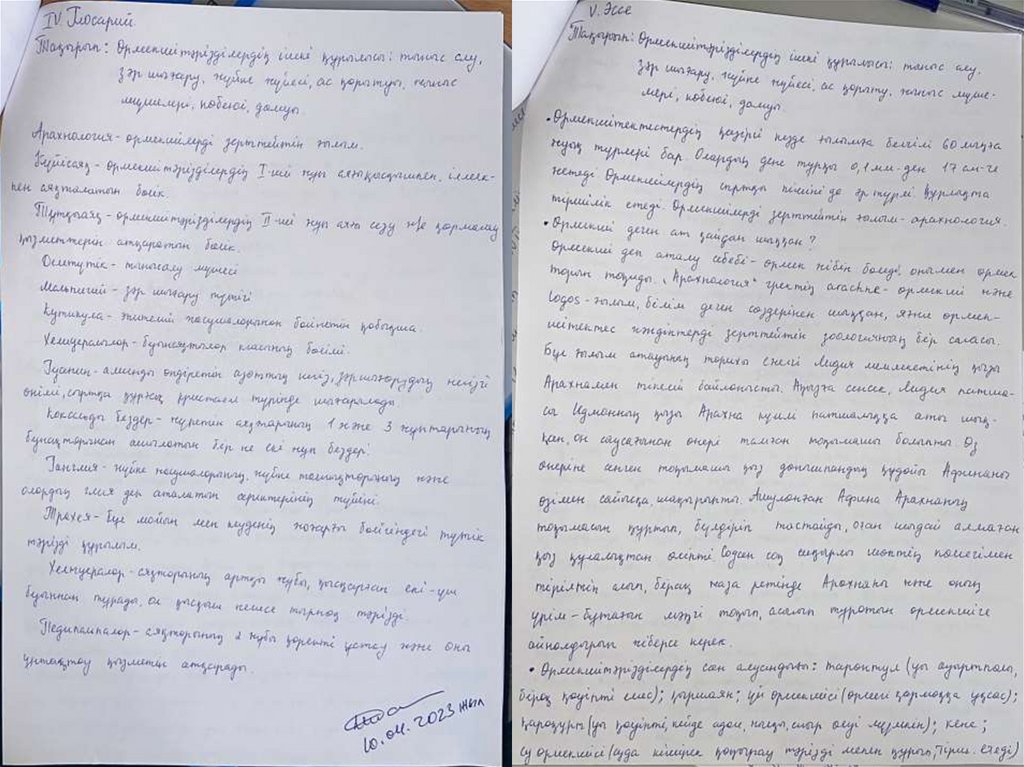 IV. Глосарий.
Тақырып: Өрмекшітәрізділердің ішкі құрылысы: тыныс алу,
зәр шығару, жүйке жүйесі, ас қорытуы, жыныс
мүшелері, көбеюі, дамуы.
Арахнология - өрмекшілерді зерттейтін ғылым.
- өрмекшітәрізділердің I-ші жұп аяқ қысқышпен, ілмек-
пен аяқталатын бөлік.
Тұтқыаяқ - өрмекшітәрізділердің II-ші жұп аяғы сезу н/е қармалау
қызметтерін атқаратын бөлік.
Өкпетүтік - тынысалу мүшесі
Мальпигий - зәр шығару түтігі
Кутикула - эпителий жасушаларынан бөлінетін қабықша.
Хелицералылар - буынаяқтылар класының бөлімі.
Гуанин - аминды өндіретін азоттық негіз, зәр шығарудың негізгі
өнімі, сыртқа құрғақ кристалл түрінде шығарылады
Коксальды бездер - жүретін аяқтарының 1 және 3 жұптарының
бунақтарынан ашылатын бір не екі жұп бездер.
Ганглия - жүйке жасушаларының, жүйке талшықтарының және
олардың глия деп аталатын серіктерінің түйіні.
Трахея - бұл мойын мен кеуденің жоғарғы бөлігіндегі түтік
тәрізді құрылым.
Хелицералар - аяқтарының артқы жұбы, қысқарған екі-үш
буыннан тұрады, ол қысқыш немесе тырнақ тәрізді.
Педипальпалар - аяқтарының 2 жұбы қоректі ұстау және оны
ұнтақтау қызметін атқарады.
10.04.2023 жыл
V. Эссе
Тақырып: Өрмекшітәрізділердің ішкі құрылысы: тыныс алу,
зәр шығару, жүйке жүйесі, ас қорыту, жыныс мүше-
лері, көбеюі, дамуы.
• Өрмекшітектестердің қазіргі кезде ғылымға белгілі 60 мыңға
жуық түрлері бар. Олардың дене тұрқы 0,1 мм-ден 17 см-ге
жетеді. Өрмекшілердің сыртқы пішіні де әр түрлі. Құрлықта
тіршілік етеді. Өрмекшілерді зерттейтін ғылым - арахнология.
• Өрмекші деген ат қайдан шыққан?
Өрмекші деп аталу себебі - өрмек жібін бөледі, онымен өрмек
торын тоқиды. "Арахнология" гректің arachne - өрмекші және
logos - ғылым, білім деген сөздерінен шыққан, яғни өрмек-
шітектес жәндіктерді зерттейтін зоологияның бір саласы.
Бұл ғылым атауының тарихы ежелгі Лидия мемлекетінің қызы
Арахнамен тікелей байланысты. Аңызға сенсек, Лидия патша-
сы Идмонның қызы Арахна күллі патшалыққа аты шық-
қан, он саусағынан өнері тамған тоқымашы болыпты. Өз
өнеріне сенген тоқымашы қыз данышпандық құдайы Афинаны
өзімен сайысқа шақырыпты. Ашуланған Афина Арахнаның
тоқымасын құртып, бүлдіріп тастайды, оған шыдай алмаған
қыз қуалықтан өліпті. Содан соң сиқырлы шөптің көмегімен
тірілтіп алып, бірақ жаза ретінде Арахнаны және оның
үрім-бұтағын мәңгі тоқып, асылып тұратын өрмекшіге
айналдырып жіберсе керек.
• Өрмекшітәрізділердің сан алуандығы: тарантул (уы ауыртпалы,
бірақ қауіпті емес); құршаян; үй өрмекшісі (өрмегі қармаққа ұқсас);
қарақұрт (уы қауіпті, кейде адам, жылқы, сиыр өлуі мүмкін); кене;
су өрмекшісі (суда кішірек қоңырау тәрізді мекен құрып, тірш. етеді)